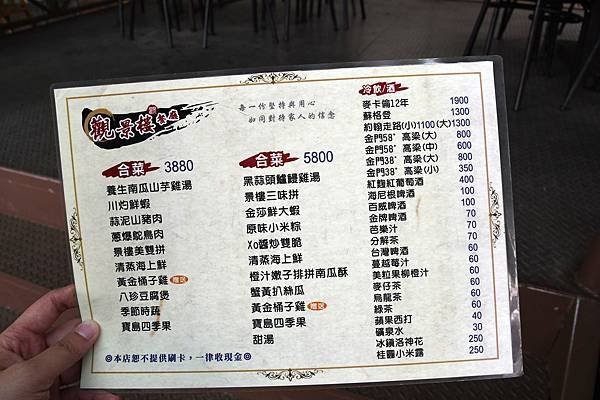 觀景樓
景觀餐廳
每一份堅持與用心
如同對待家人的信念
合菜 3880
養生南瓜山芋雞湯
川灼鮮蝦
蒜泥山豬肉
蔥爆鴕鳥肉
景樓美雙拼
清蒸海上鮮
黃金桶子雞 贈送
八珍豆腐煲
季節時蔬
寶島四季果
合菜 5800
黑蒜頭鱸鰻雞湯
景樓三味拼
金莎鮮大蝦
原味小米粽
Xo醬炒雙脆
清蒸海上鮮
橙汁嫩子排拼南瓜酥
蟹黃扒絲瓜
黃金桶子雞 贈送
寶島四季果
甜湯
冷飲/酒
麥卡倫12年 1900
蘇格登 1300
約翰走路(小)1100(大)1300
金門58°高粱(大) 800
金門58°高粱(中) 600
金門38°高粱(大) 800
金門38°高粱(小) 350
紅麴紅葡萄酒 400
海尼根啤酒 100
百威啤酒 100
金牌啤酒 70
芭樂汁 70
分解茶 70
台灣啤酒 60
蔓越莓汁 60
美粒果柳橙汁 60
麥仔茶 60
烏龍茶 60
綠茶 60
蘋果西打 40
礦泉水 30
冰鎮洛神花 250
桂圓小米露 250
◎本店恕不提供刷卡，一律收現金◎